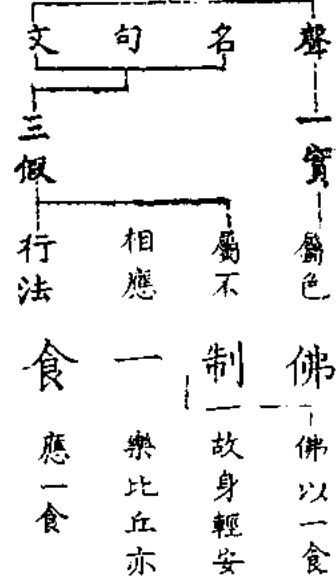 聲
名
句
文
一實
三假
屬色
屬不
相應
行法
佛制一食
佛以一食
故身輕安
樂比丘亦
應一食